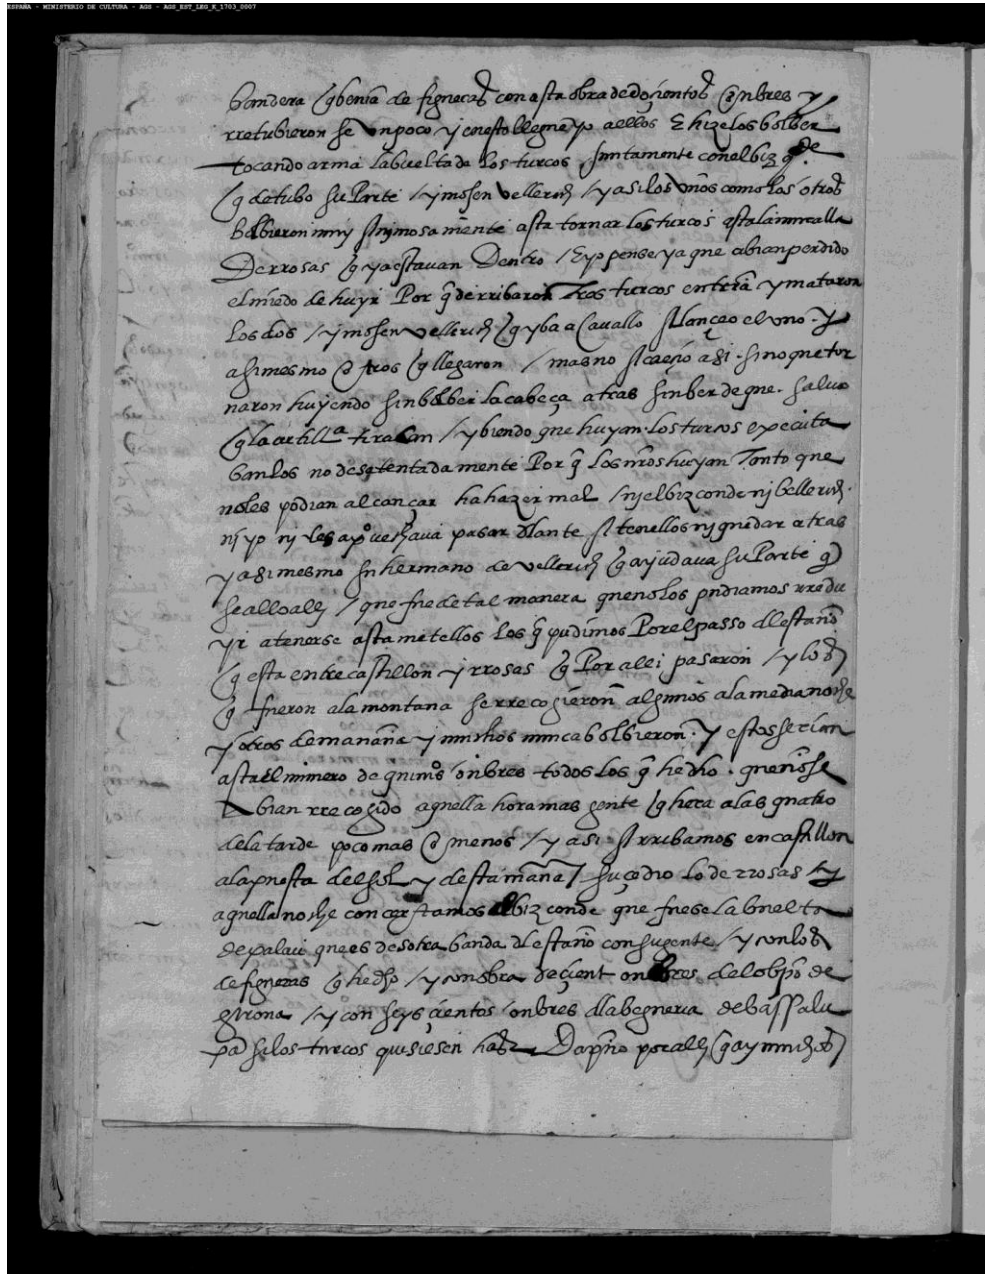 ESPAÑA - MINISTERIO DE CULTURA - AGS - AGS_EST_LEG_K_1703_0007
bandera q benia de figueras con asta obra de dozientos onbres y
rretubieron se un poco y en esto llegue yo a ellos E hize los bolber
tocando arma la buelta de los turcos juntamente con el bizcde
q detubo su parte / y mosen vellerich / y asi los unos como los otros
bolbieron muy animosamente asta tornar los turcos asta la muralla
De rrosas q ya estavan Dentro / E yo pense ya que abian perdido
el miedo de huyr Por q derribaron tras turcos en tierra y mataron
los dos / y mosen vellerich q yba a Cavallo alanceo el uno . y
asi mesmo otros q llegaron / mas no acaeçio asi . sino que tor
naron huyendo sin bolber la cabeça atras sin ber de que . salvo
q la artilla tiravan / y biendo que huyan los turcos executa
banlos no desatentadamente Por q los nros huyan Tanto que
no les podian alcançar ha hazer mal / ni el bizconde ni bellerich .
ni yo ni les aprovechava pasar dlante a tenellos ni quedar atras
y asi mesmo un hermano de vellerich q ayudava su Parte q
se allo alli / que fue de tal manera que no los pudiamos rredu
yr a tenerse asta metellos los q pudimos Por el passo dl estaño
q esta entre castillon y rrosas q Por alli pasaron / y los
q fueron a la montana se rrecogieron algunos a la media noche
y otros de manana y muchos nunca bolbieron . y estos serian
asta el numero de quinios onbres todos los q he dho . que no se
abian rrecogido aquella hora mas gente q hera a las quatro
de la tarde poco mas o menos / y asi arribamos en castillon
a la puesta del sol y desta mana / suçedio lo de rrosas / y
aquella noche conçertamos el bizconde que fuese la buelta
de palau que es desotra banda dl estaño con su gente / y con los
de figueras q he dho / y con obra de çient onbres del obpo de
girona / y con seys çientos onbres dla begueria de bassalu
pa si los turcos quisiesen hazer Daño por alli q ay muchos